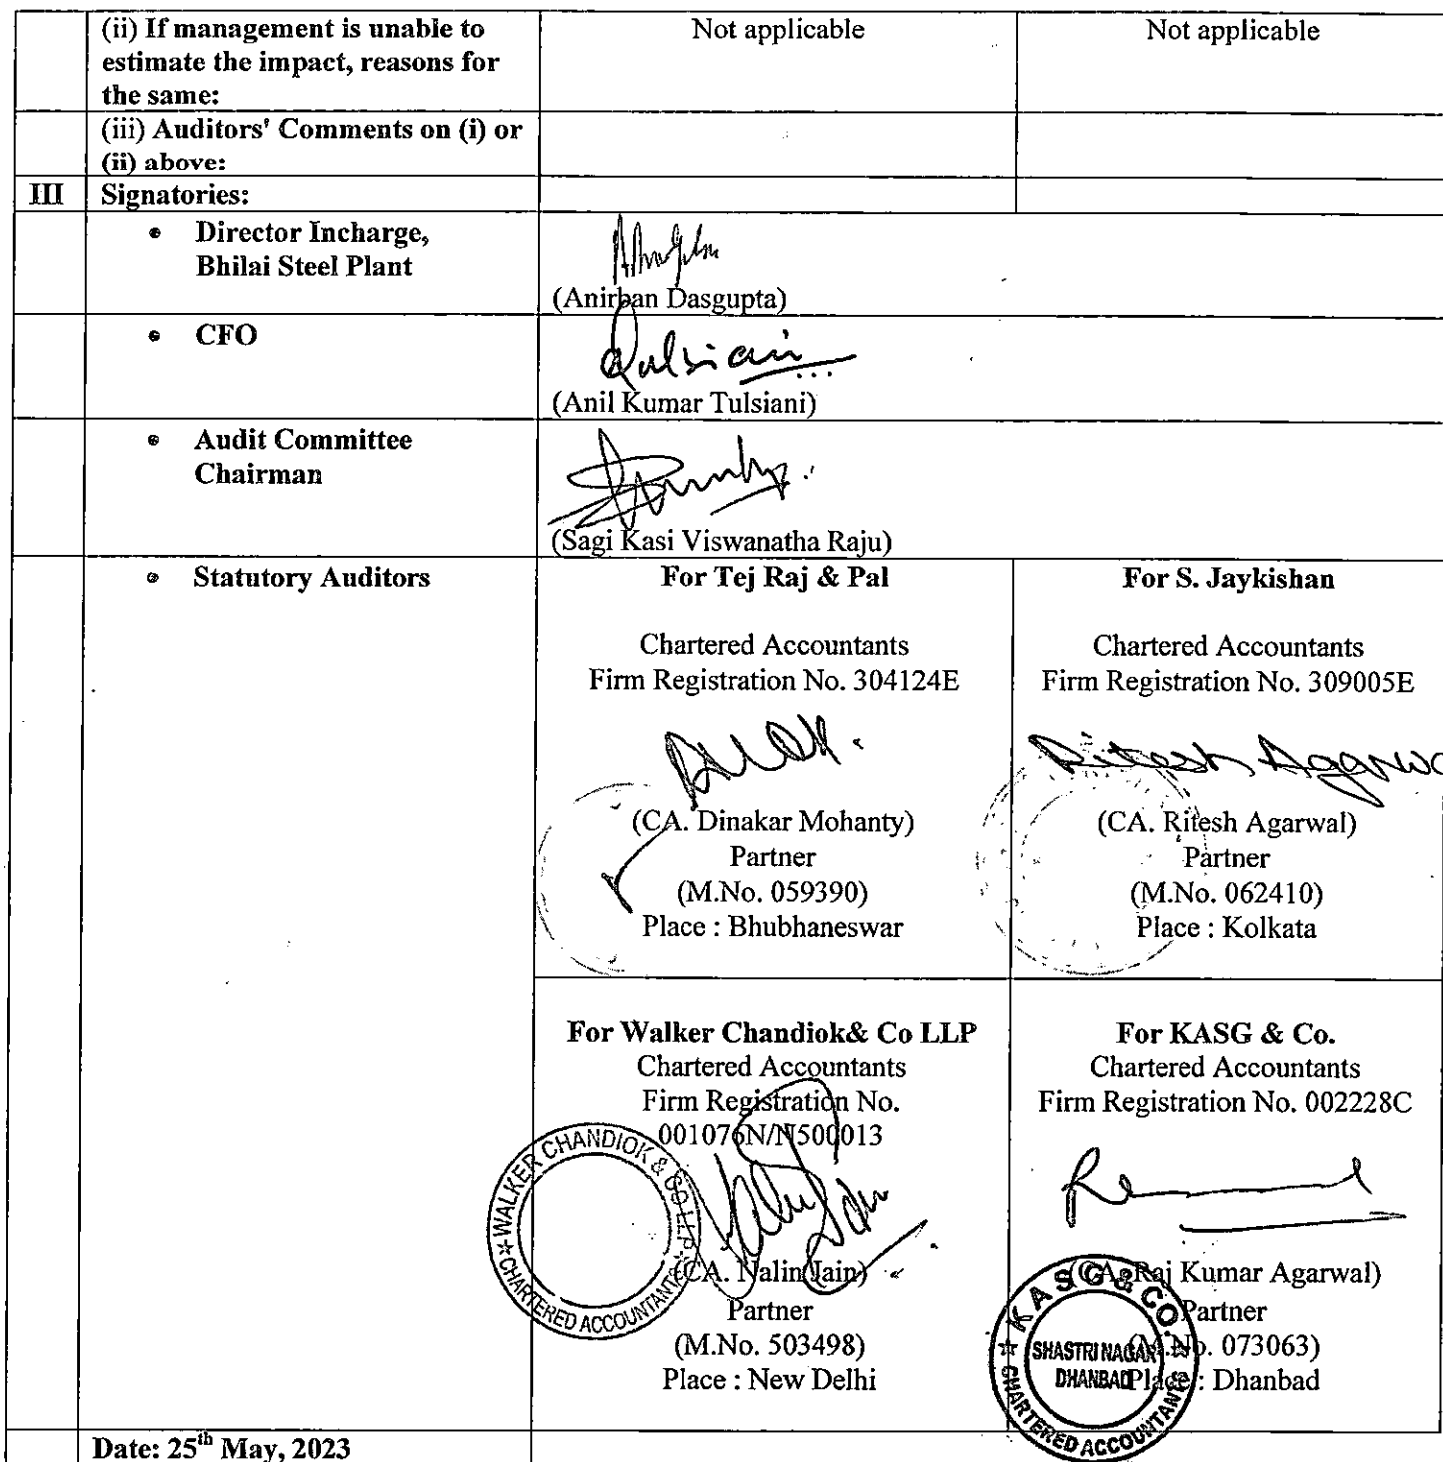 (ii) If management is unable to estimate the impact, reasons for the same:
Not applicable
Not applicable
(iii) Auditors' Comments on (i) or (ii) above:
III Signatories:
• Director Incharge, Bhilai Steel Plant
(Anirban Dasgupta)
• CFO
(Anil Kumar Tulsiani)
• Audit Committee Chairman
(Sagi Kasi Viswanatha Raju)
• Statutory Auditors
For Tej Raj & Pal
Chartered Accountants
Firm Registration No. 304124E
(CA. Dinakar Mohanty)
Partner
(M.No. 059390)
Place : Bhubhaneswar
For S. Jaykishan
Chartered Accountants
Firm Registration No. 309005E
Ritesh Agarwa
(CA. Ritesh Agarwal)
Partner
(M.No. 062410)
Place : Kolkata
For Walker Chandiok& Co LLP
Chartered Accountants
Firm Registration No.
001076N/N500013
WALKER CHANDIOK & CO LLP
CHARTERED ACCOUNTANTS
Nalin Jain
(CA. Nalin Jain)
Partner
(M.No. 503498)
Place : New Delhi
For KASG & Co.
Chartered Accountants
Firm Registration No. 002228C
(CA. Raj Kumar Agarwal)
Partner
(M.No. 073063)
Place : Dhanbad
KASG & CO.
SHASTRI NAGAR
DHANBAD
CHARTERED ACCOUNTANTS
Date: 25th May, 2023